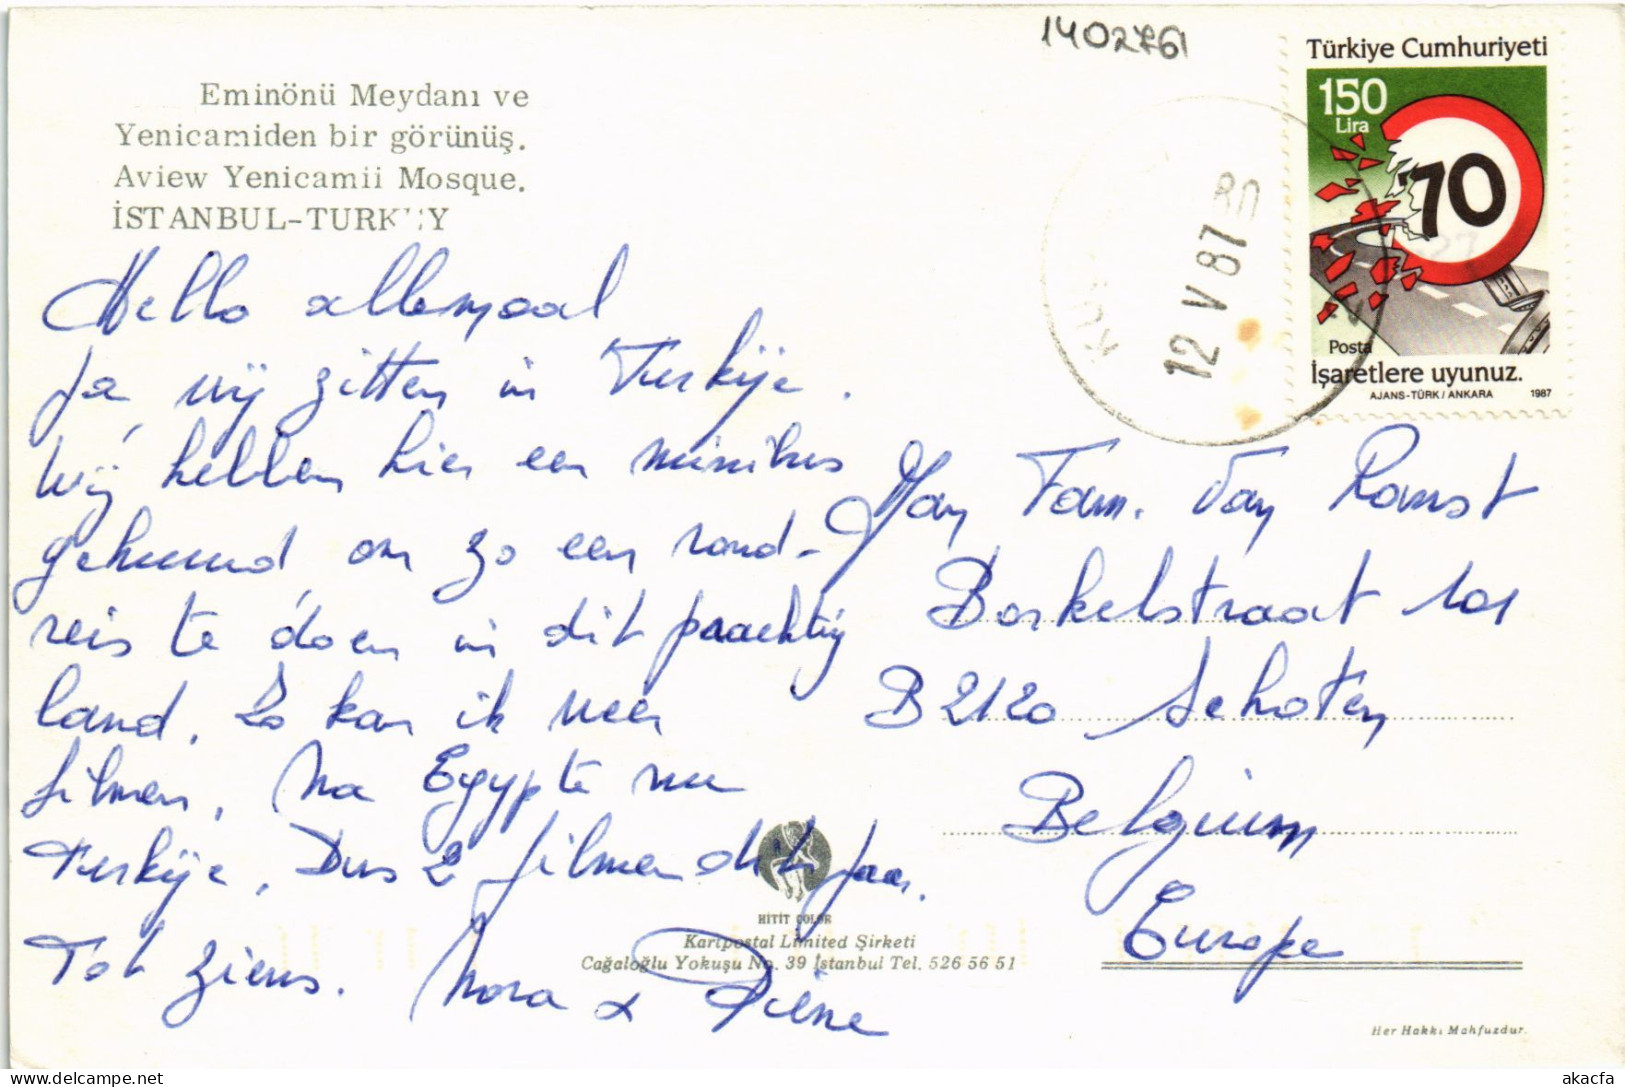 1402761
Türkiye Cumhuriyeti
150
Lira
70
Posta
İşaretlere uyunuz.
AJANS-TÜRK / ANKARA 1987
12 V 87
Eminönü Meydanı ve
Yenicamiden bir görünüş.
Aview Yenicamii Mosque.
İSTANBUL-TURKEY
Hello allemaal
Ja, wij zitten in Turkije.
Wij hebben hier een minibus
gehuurd om zo een rond-
reis te doen in dit prachtig
land. Zo kan ik weer
filmen. Na Egypte nu
Turkije. Dus 2 filmen dit jaar.
Tot ziens. Nora &
Fam. Van Ranst
Borkelstraat 101
B 2120 Schoten
Belgium
Europe
HİTİT ÇOLOR
Kartpostal Limited Şirketi
Cağaloğlu Yokuşu No. 39 İstanbul Tel. 526 56 51
Her Hakkı Mahfuzdur.
akacfa